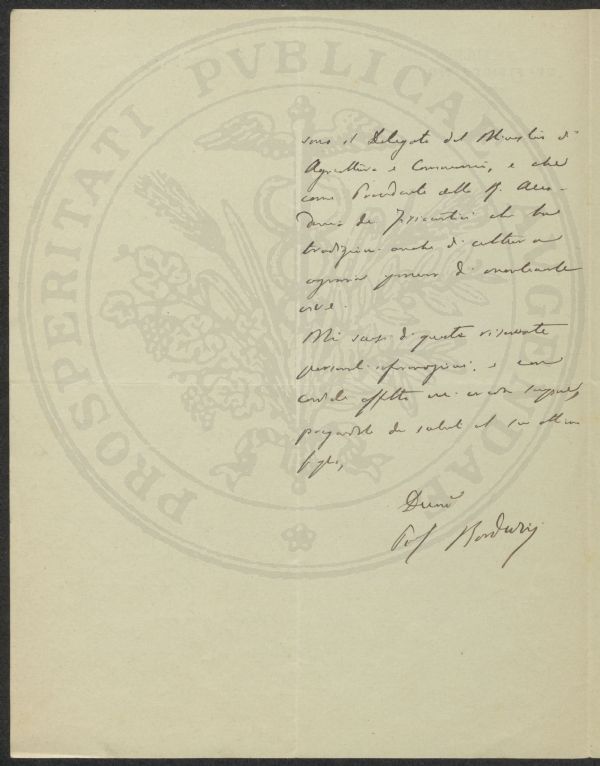 PROSPERITATI PUBLICAE AUGENDAE
sono il Delegato del Ministro di
Agricoltura e Commercio, e che
come Presidente della R. Acca-
demia dei Fisiocritici che ha
tradizioni anche di cultura
agraria di
Mi scusi di queste riservate
personali informazioni, e con
cordiale affetto mi creda sempre,
pregandola dei saluti al suo ottimo
figlio,
Devmo
Prof